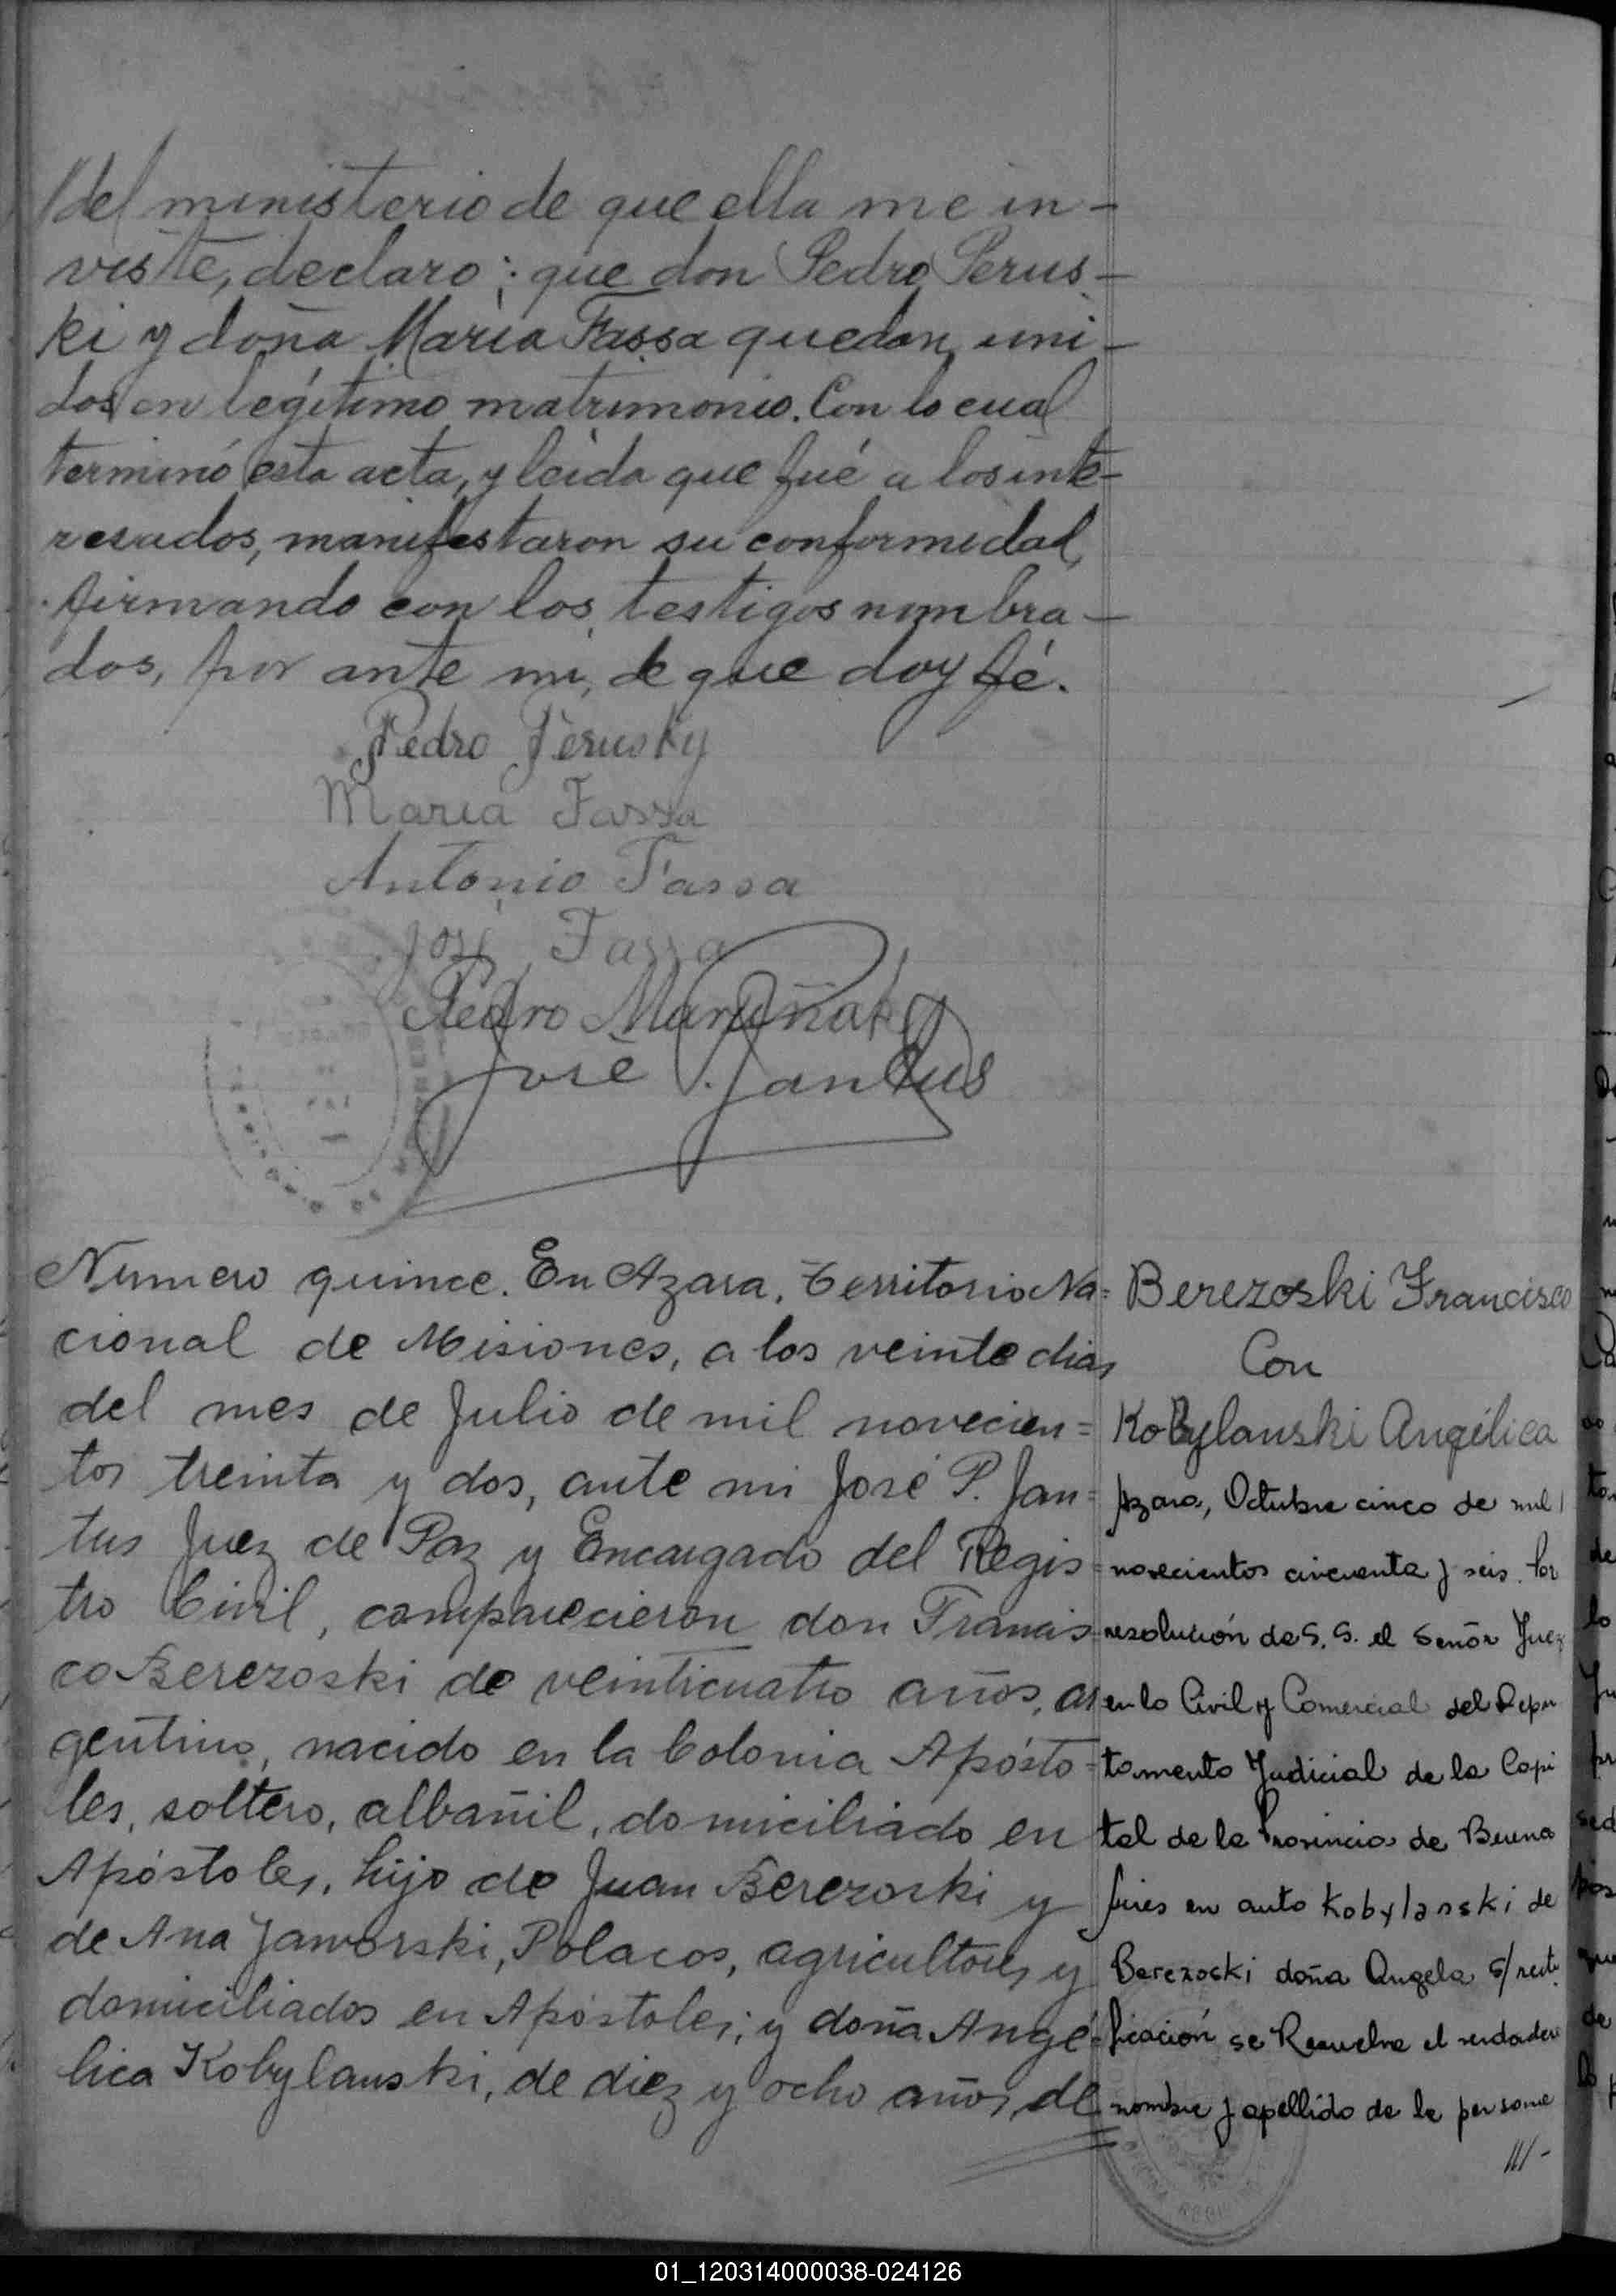 /del ministerio de que ella me in-
viste, declaro; que don Pedro Perus-
ki y doña Maria Fassa quedan uni-
dos en legítimo matrimonio. Con lo cual
terminó esta acta, y leida que fué a los inte-
resados, manifestaron su conformidad,
firmando con los testigos nombra-
dos, por ante mi, de que doy fé.
Pedro Perusky
Maria Fassa
Antonio Fassa
José Fassa
Pedro
José P. Jantus
Numero quince. En Azara, Territorio Na=
cional de Misiones, a los veinte dias
del mes de Julio de mil novecien=
tos treinta y dos, ante mi José P. Jan=
tus Juez de Paz y Encargado del Regis=
tro Civil, comparecieron don Francis=
co Berezoski de veinticuatro años, ar
gentino, nacido en la Colonia Apósto=
les, soltero, albañil, domiciliado en
Apóstoles, hijo de Juan Berezoski y
de Ana Jaworski, Polacos, agricultores y
domiciliados en Apóstoles; y doña Angé=
lica Kobylanski, de diez y ocho años, de
Berezoski Francisco
Con
Kobylanski Angélica
Azara, Octubre cinco de mil
novecientos cincuenta y seis. Por
resolución de S. S. el Señor Juez
en lo Civil y Comercial del Depar
tamento Judicial de la Capi
tal de la Provincia de Bueno
Aires en auto Kobylanski de
Berezoski doña Angela s/ recti
ficación se Resuelve el verdadero
nombre y apellido de la persona
///-
01_120314000038-024126